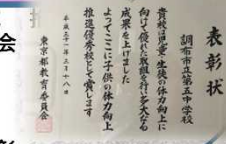 表彰状
調布市立第五中学校
貴校は児童・生徒の体力向上に
向けて優れた取組を行い多大なる
成果を上げました
よってここに子供の体力向上
推進優秀校として賞します
平成三十一年二月十八日
東京都教育委員会
会